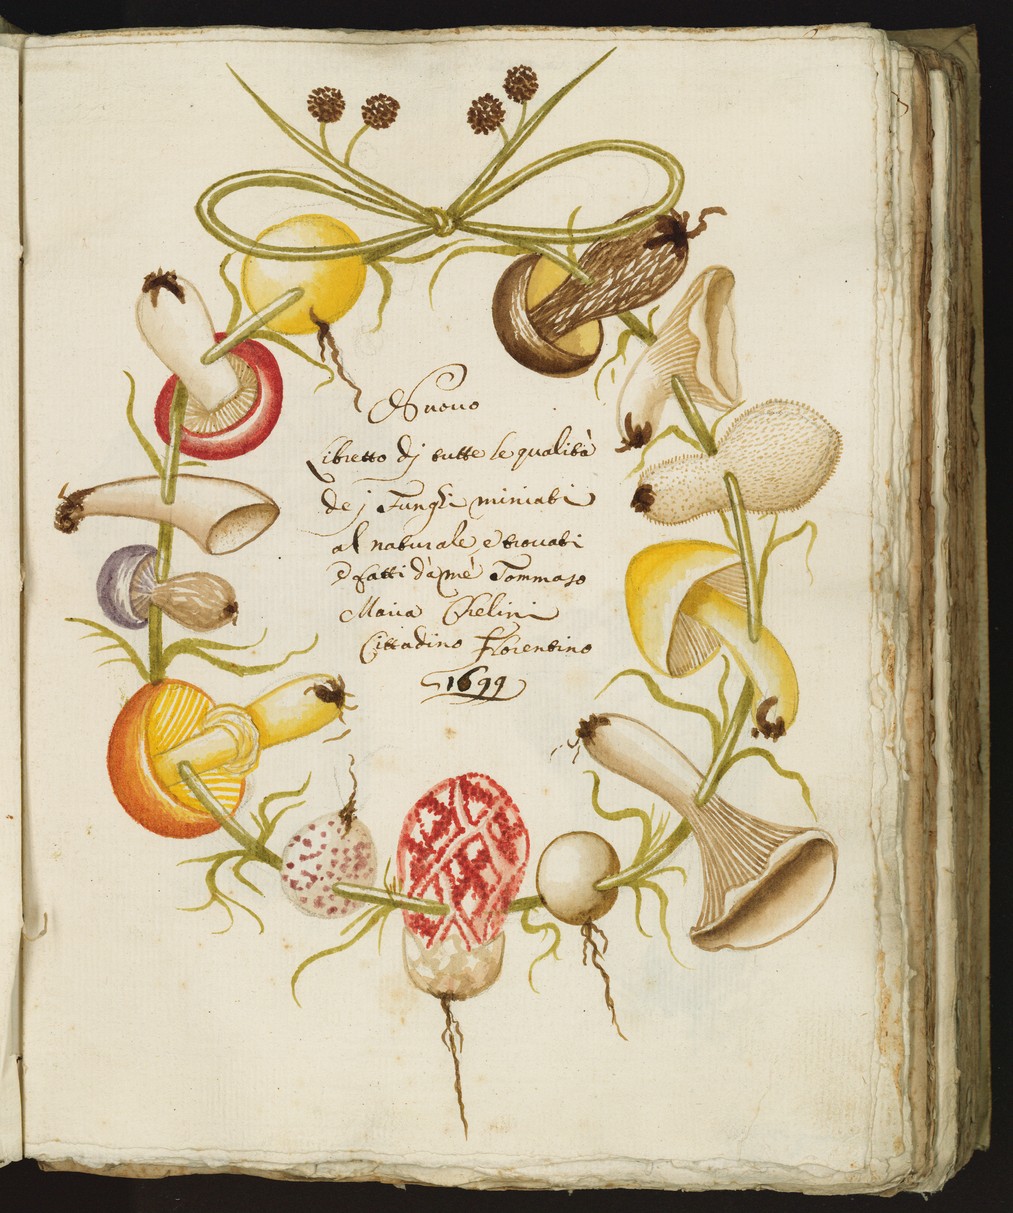 Nuovo
Libretto dj tutte le qualità
de j Funghi miniati
al naturale, e trovati
e fatti da mé Tommaso
Maria Chelini
Cittadino Florentino
1699